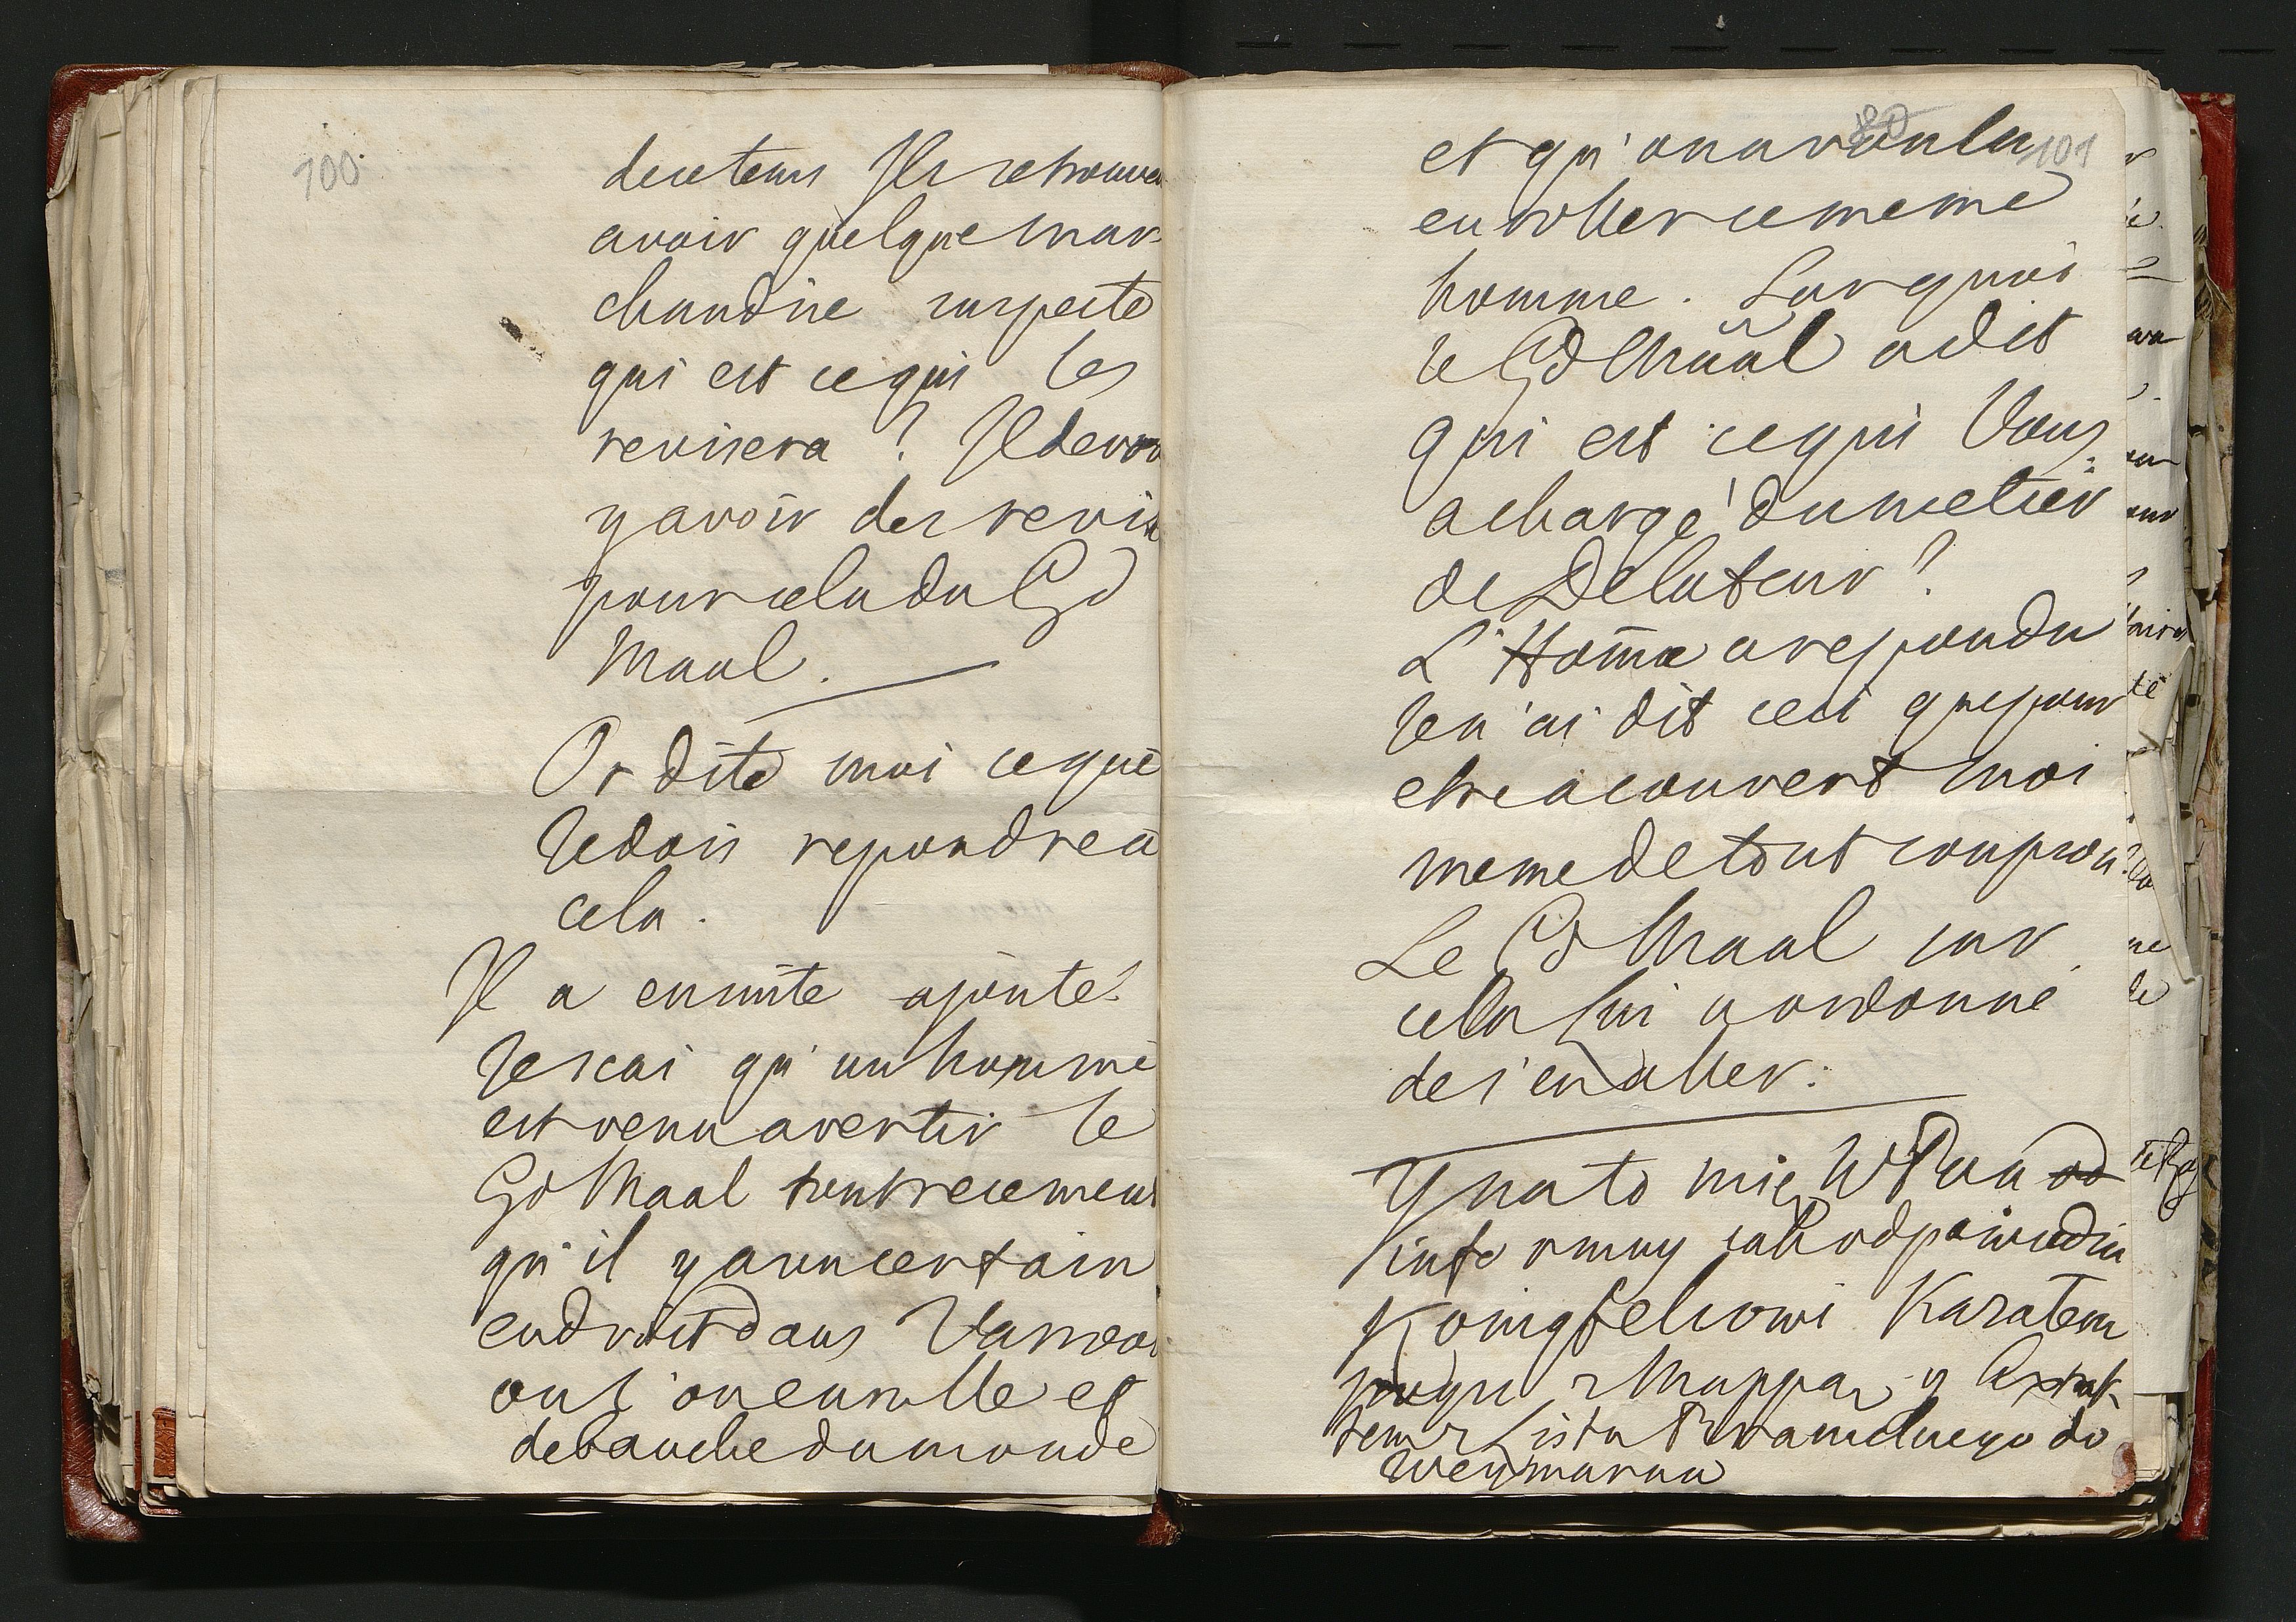 100
decetems Ils se trouve
avoir quelque mar-
chandise suspecte
qui est ce qui les
revisera? Il devro
y avoir des revis
pour cela du Gd
Maal.
Or dite moi ce que
Je dois repondre a
cela.
Il a ensuite ajouté
Je scai qu'un homme
est venu avertir le
Gd Maal
qu'il y a un certain
endroit dans Varsov
ou l'on enrolle et
debauche du monde
80
101
et qu'on a voulu
enroller ce meme
homme. Sur quoi
le Gd Maal a dit
qui est ce qui Vous
a chargé du metier
de Delateur?
L'Home a repondu
Je n'ai dit ceci que pour
etre a couvert moi
meme de tout soupson.
Le Gd Maal sur
cela lui a ordonné
de s'en aller.
Y na to mię WPan od
informuy iak odpowiedzi
Konigfelsowi Karatem
z Mappą y Extrak-
tem z Listu do
Weymarna